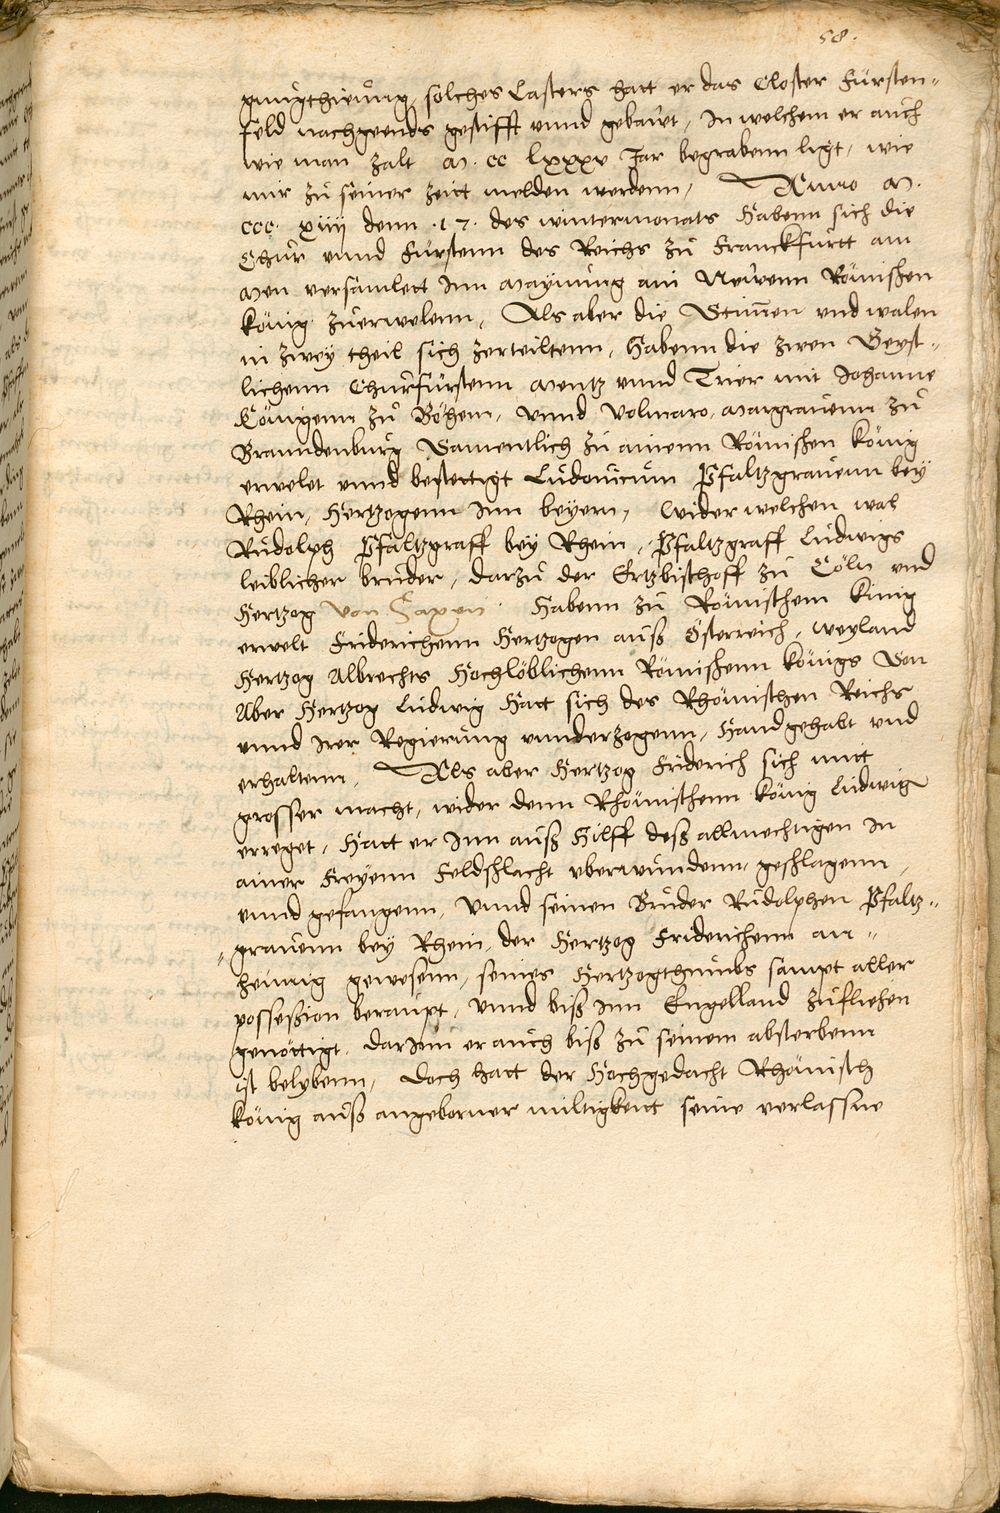 58.
gnuͦgthieuͦng, solches Lasters hatt er das Closter Fuͤrsten=
feld nachgeends gestifft unnd gebawt, In welchem er auch
wie man zalt M. CC lxxxv Jar begrabenn ligt, wie
mir zu seiner zeitt melden werdenn, Anno M.
CCC. xiiij denn .17. des wintermonats Habenn sich die
Chur unnd Fuͤrstenn des Reichs zu Franckfurtt am
Men versamlett Inn Maynung ain Newenn Roͤmischen
koͤnig zuerwelenn, Als aber die Stimen und walen
in zwey theil sich zerteiltenn, Habenn die zwen Geyst=
lichenn Churfuͤrstenn Mentz unnd Trier mit Johanne
Koͤnigenn zu Boͤhem, unnd Volmaro, Margrauenn zu
Branndenburg Samentlich zu ainenn Roͤmischen koͤnig
erwelet unnd bestettigt Ludouicum Pfaltzgrauenn bey
Rhein, Hertzogenn Inn beyern, wider welchen wal
Rudolph Pfaltzgraff bey Rhein, Pfaltzgraff Ludwigs
leiblicher bruder, darzu der Ertzbischoff zu Coͤln und
Hertzog von Saxen Habenn zu Roͤmischem kinig
erwelt Friderichenn Hertzogen auß Oͤsterreich, weyland
Hertzog Albrechts Hochloͤblichenn Roͤmischenn koͤnigs Son
Aber Hertzog Ludwig Hatt sich des Rhoͤmischen Reichs
unnd irer Regierung unnderzogenn, Handgehabt und
erhaltenn, Als aber Hertzog Friderich sich mitt
grosser macht, wider denn Rhoͤmischenn koͤnig Ludwig
erreget, Hatt er Inn auß Hilff deß allmechtigen In
ainer Freyenn Feldschlacht uberwundenn, geschlagenn,
unnd gefangenn, Unnd seinen Bruder Rudolphen Pfaltz=
grauenn bey Rhein, der Hertzog Friderichenn an=
=hennig gewesenn, seines Hertzogthumbs sampt aller
possession beraupt, unnd biß Inn Engelland zufliehen
genoͤttigt, darInn er auch biß zu seinem absterbenn
ist belybenn, Doch hatt der Hochgedacht Rhoͤmisch
koͤnig auß angeborner miltigkeitt seine verlassne